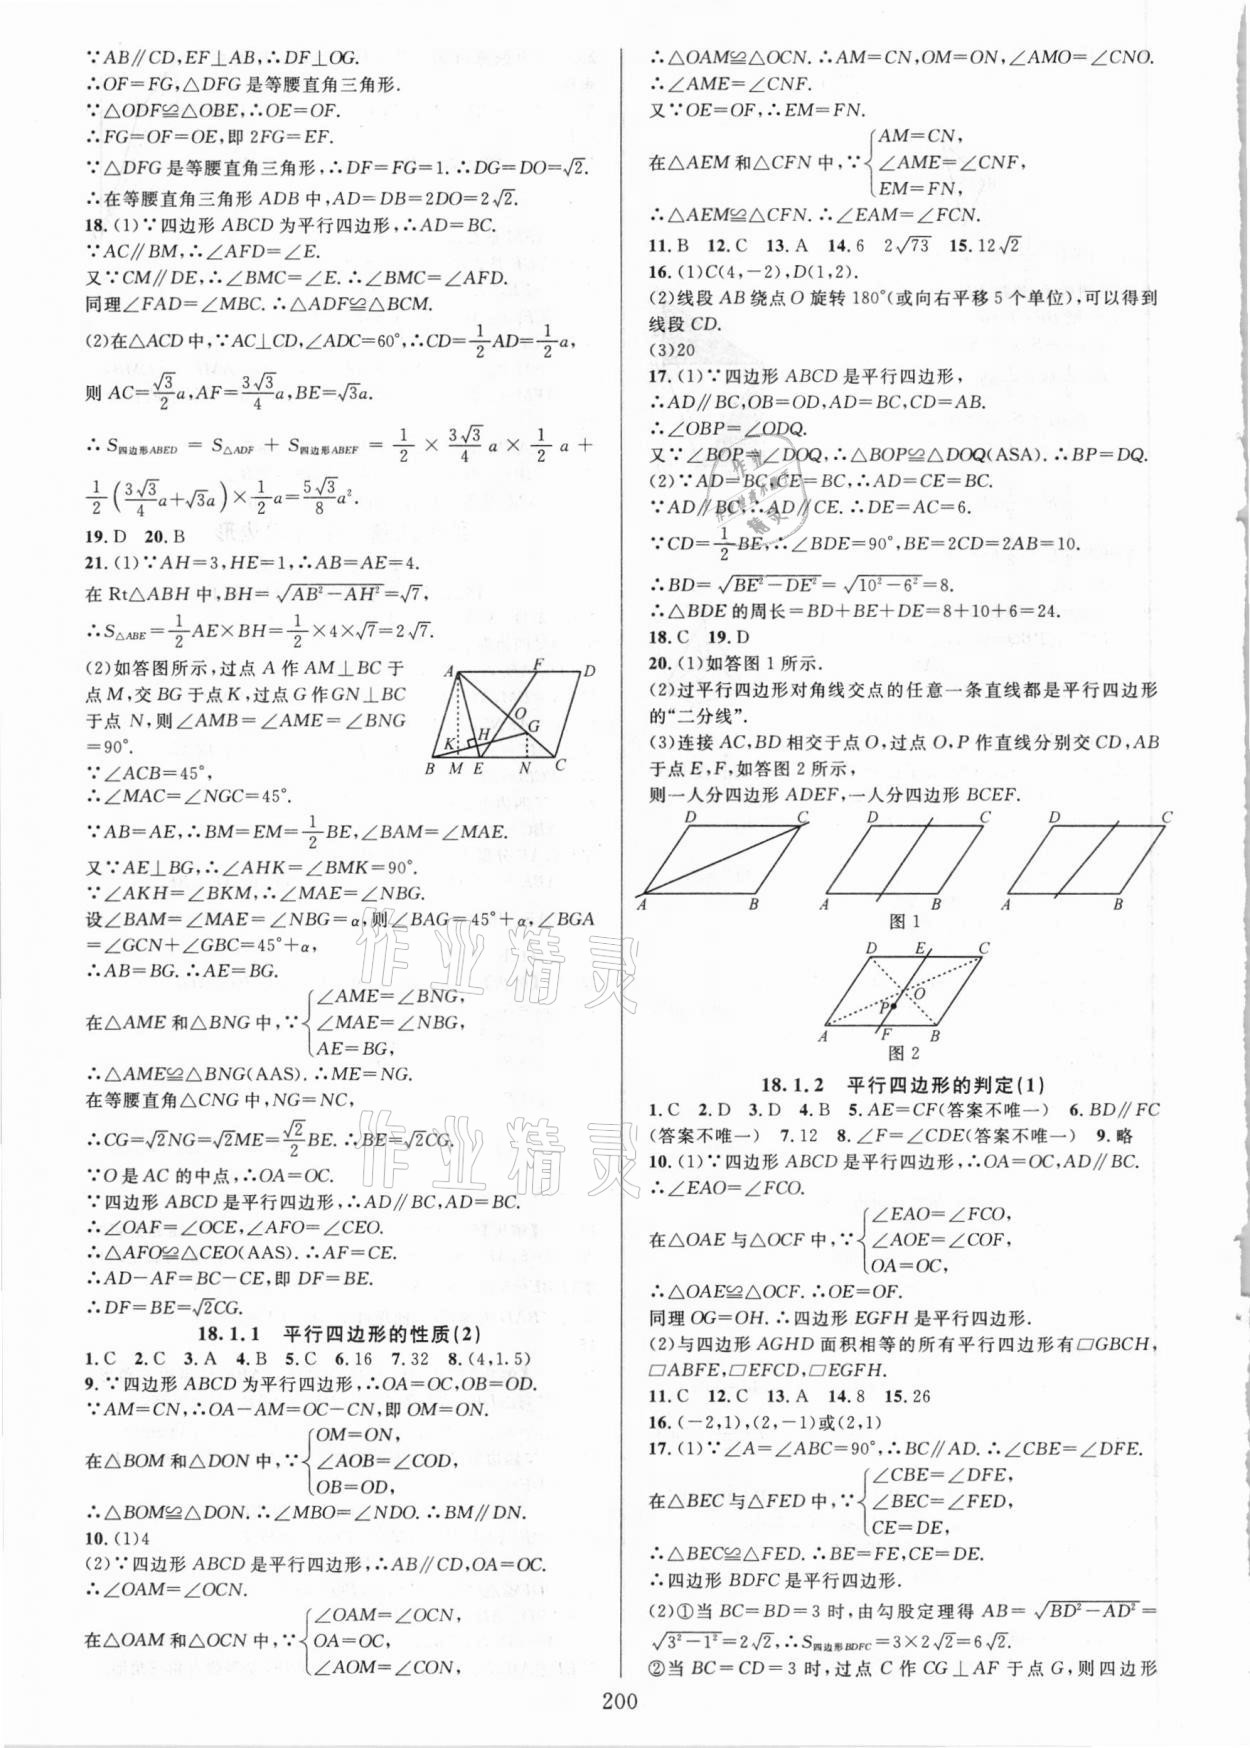 ∵AB∥CD,EF⊥AB,∴DF⊥OG.
∴OF=FG,△DFG是等腰直角三角形.
∵△ODF≌△OBE,∴OE=OF.
∴FG=OF=OE,即2FG=EF.
∵△DFG是等腰直角三角形,∴DF=FG=1.∴DG=DO=√2.
∴在等腰直角三角形ADB中,AD=DB=2DO=2√2.
18.(1)∵四边形ABCD为平行四边形,∴AD=BC.
∵AC∥BM,∴∠AFD=∠E.
又∵CM∥DE,∴∠BMC=∠E.∴∠BMC=∠AFD.
同理∠FAD=∠MBC.∴△ADF≌△BCM.
(2)在△ACD中,∵AC⊥CD,∠ADC=60°,∴CD=1/2AD=1/2a,
则AC=√3/2a,AF=3√3/4a,BE=√3a.
∴S四边形ABED=S△ADF+S四边形ABEF=1/2×3√3/4a×1/2a+
1/2(3√3/4a+√3a)×1/2a=5√3/8a².
19.D 20.B
21.(1)∵AH=3,HE=1,∴AB=AE=4.
在Rt△ABH中,BH=√(AB²-AH²)=√7,
∴S△ABE=1/2AE×BH=1/2×4×√7=2√7.
(2)如答图所示,过点A作AM⊥BC于
点M,交BG于点K,过点G作GN⊥BC
于点N,则∠AMB=∠AME=∠BNG
=90°.
A F D
O
G
K H
B M E N C
∵∠ACB=45°,
∴∠MAC=∠NGC=45°.
∵AB=AE,∴BM=EM=1/2BE,∠BAM=∠MAE.
又∵AE⊥BG,∴∠AHK=∠BMK=90°.
∵∠AKH=∠BKM,∴∠MAE=∠NBG.
设∠BAM=∠MAE=∠NBG=α,则∠BAG=45°+α,∠BGA
=∠GCN+∠GBC=45°+α,
∴AB=BG.∴AE=BG.
在△AME和△BNG中,∵{∠AME=∠BNG,
∠MAE=∠NBG,
AE=BG,
∴△AME≌△BNG(AAS).∴ME=NG.
在等腰直角△CNG中,NG=NC,
∴CG=√2NG=√2ME=√2/2BE.∴BE=√2CG.
∵O是AC的中点,∴OA=OC.
∵四边形ABCD是平行四边形,∴AD∥BC,AD=BC.
∴∠OAF=∠OCE,∠AFO=∠CEO.
∴△AFO≌△CEO(AAS).∴AF=CE.
∴AD-AF=BC-CE,即DF=BE.
∴DF=BE=√2CG.
18.1.1 平行四边形的性质(2)
1.C 2.C 3.A 4.B 5.C 6.16 7.32 8.(4,1.5)
9.∵四边形ABCD为平行四边形,∴OA=OC,OB=OD.
∵AM=CN,∴OA-AM=OC-CN,即OM=ON.
在△BOM和△DON中,∵{OM=ON,
∠AOB=∠COD,
OB=OD,
∴△BOM≌△DON.∴∠MBO=∠NDO.∴BM∥DN.
10.(1)4
(2)∵四边形ABCD是平行四边形,∴AB∥CD,OA=OC.
∴∠OAM=∠OCN.
在△OAM和△OCN中,∵{∠OAM=∠OCN,
OA=OC,
∠AOM=∠CON,
∴△OAM≌△OCN.∴AM=CN,OM=ON,∠AMO=∠CNO.
∴∠AME=∠CNF.
又∵OE=OF,∴EM=FN.
在△AEM和△CFN中,∵{AM=CN,
∠AME=∠CNF,
EM=FN,
∴△AEM≌△CFN.∴∠EAM=∠FCN.
11.B 12.C 13.A 14.6 2√73 15.12√2
16.(1)C(4,-2),D(1,2).
(2)线段AB绕点O旋转180°(或向右平移5个单位),可以得到
线段CD.
(3)20
17.(1)∵四边形ABCD是平行四边形,
∴AD∥BC,OB=OD,AD=BC,CD=AB.
∴∠OBP=∠ODQ.
又∵∠BOP=∠DOQ,∴△BOP≌△DOQ(ASA).∴BP=DQ.
(2)∵AD=BC,CE=BC,∴AD=CE=BC.
∵AD∥BC,∴AD∥CE.∴DE=AC=6.
∵CD=1/2BE,∴∠BDE=90°,BE=2CD=2AB=10.
∴BD=√(BE²-DE²)=√(10²-6²)=8.
∴△BDE的周长=BD+BE+DE=8+10+6=24.
18.C 19.D
20.(1)如答图1所示.
(2)过平行四边形对角线交点的任意一条直线都是平行四边形
的“二分线”.
(3)连接AC,BD相交于点O,过点O,P作直线分别交CD,AB
于点E,F,如答图2所示,
则一人分四边形ADEF,一人分四边形BCEF.
D C D C D C
A B A B A B
图1
D E C
O
P
A F B
图2
18.1.2 平行四边形的判定(1)
1.C 2.D 3.D 4.B 5.AE=CF(答案不唯一) 6.BD∥FC
(答案不唯一) 7.12 8.∠F=∠CDE(答案不唯一) 9.略
10.(1)∵四边形ABCD是平行四边形,∴OA=OC,AD∥BC.
∴∠EAO=∠FCO.
在△OAE与△OCF中,∵{∠EAO=∠FCO,
∠AOE=∠COF,
OA=OC,
∴△OAE≌△OCF.∴OE=OF.
同理OG=OH.∴四边形EGFH是平行四边形.
(2)与四边形AGHD面积相等的所有平行四边形有□GBCH,
□ABFE,□EFCD,□EGFH.
11.C 12.C 13.A 14.8 15.26
16.(-2,1),(2,-1)或(2,1)
17.(1)∵∠A=∠ABC=90°,∴BC∥AD.∴∠CBE=∠DFE.
在△BEC与△FED中,∵{∠CBE=∠DFE,
∠BEC=∠FED,
CE=DE,
∴△BEC≌△FED.∴BE=FE,CE=DE.
∴四边形BDFC是平行四边形.
(2)①当BC=BD=3时,由勾股定理得AB=√(BD²-AD²)=
√(3²-1²)=2√2,∴S四边形BDFC=3×2√2=6√2.
②当BC=CD=3时,过点C作CG⊥AF于点G,则四边形
200
作业精灵
作业精灵